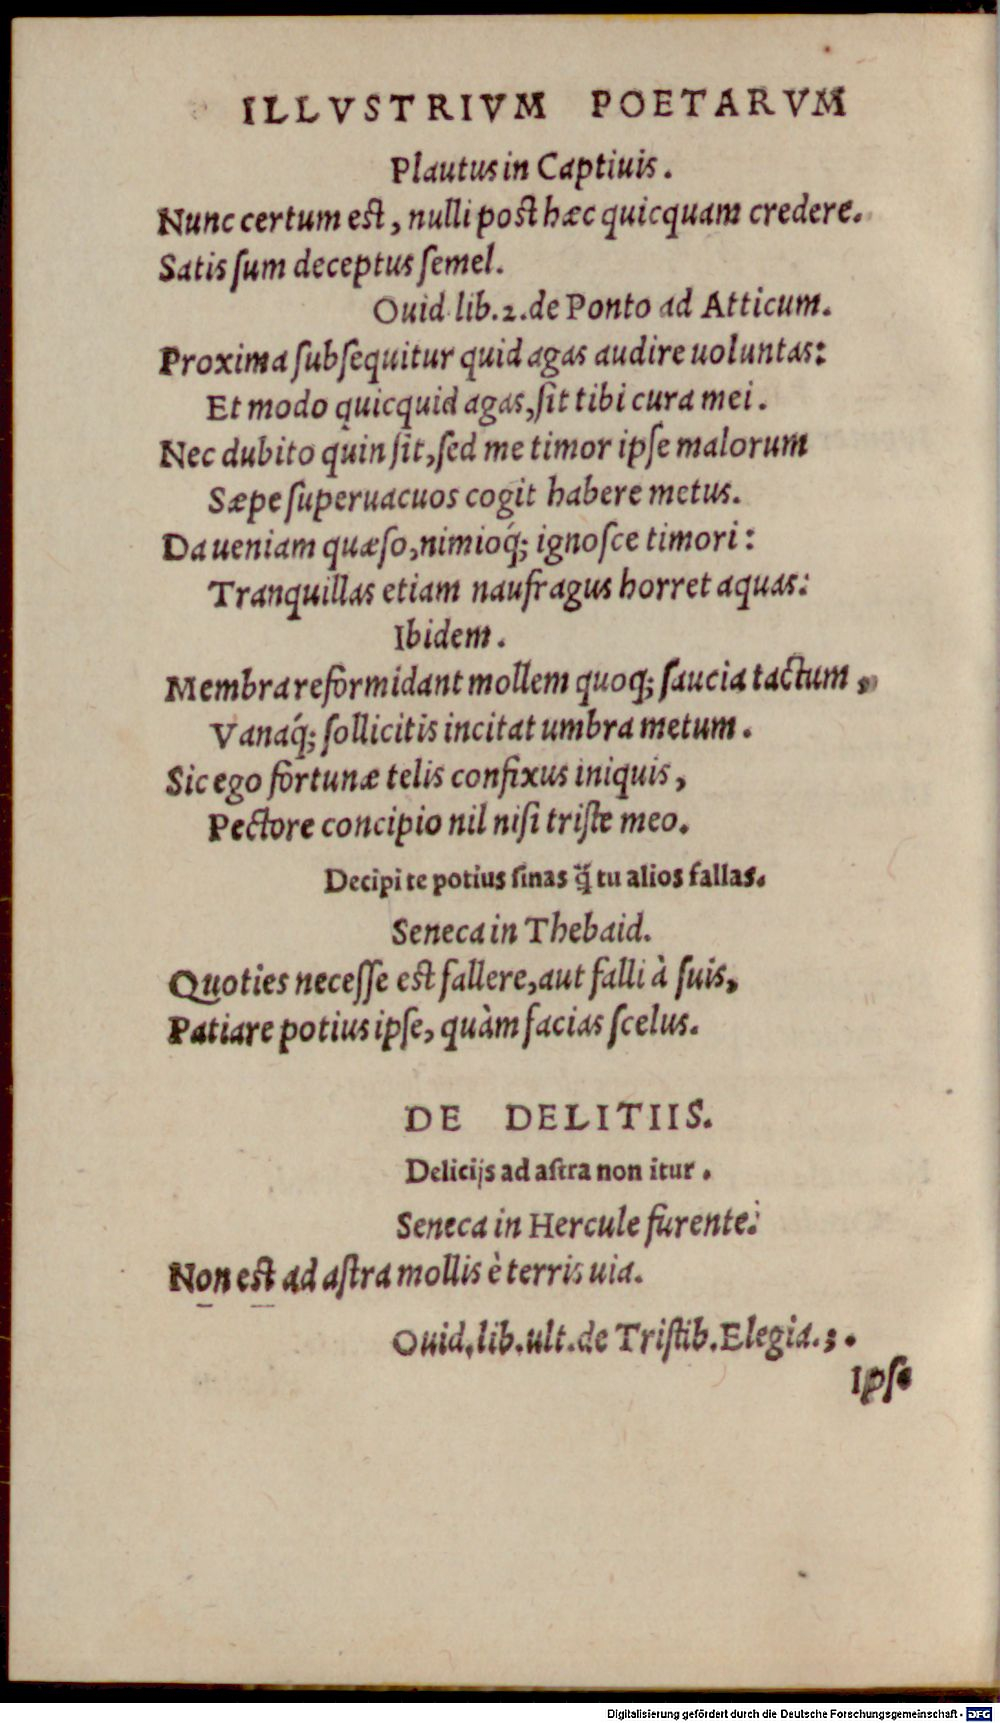 ILLVSTRIVM POETARVM
Plautus in Captiuis.
Nunc certum est, nulli post hæc quicquam credere.
Satis ſum deceptus ſemel.
Ouid lib.2.de Ponto ad Atticum.
Proxima ſubſequitur quid agas audire uoluntas:
Et modo quicquid agas, ſit tibi cura mei.
Nec dubito quin ſit, ſed me timor ipſe malorum
Sæpe ſuperuacuos cogit habere metus.
Da ueniam quæſo, nimioq́; ignoſce timori:
Tranquillas etiam naufragus horret aquas:
Ibidem.
Membra reformidant mollem quoq; ſaucia tactum,
Vanaq́; ſollicitis incitat umbra metum.
Sic ego fortunæ telis confixus iniquis,
Pectore concipio nil niſi triſte meo.
Decipi te potius ſinas q̃ tu alios fallas.
Seneca in Thebaid.
Quoties neceſſe est fallere, aut falli à ſuis,
Patiare potius ipſe, quàm facias ſcelus.
DE DELITIIS.
Delicijs ad aſtra non itur.
Seneca in Hercule furente.
Non est ad aſtra mollis è terris uia.
Ouid.lib.ult.de Triſtib.Elegia.3.
Ipſe
Digitalisierung gefördert durch die Deutsche Forschungsgemeinschaft - DFG